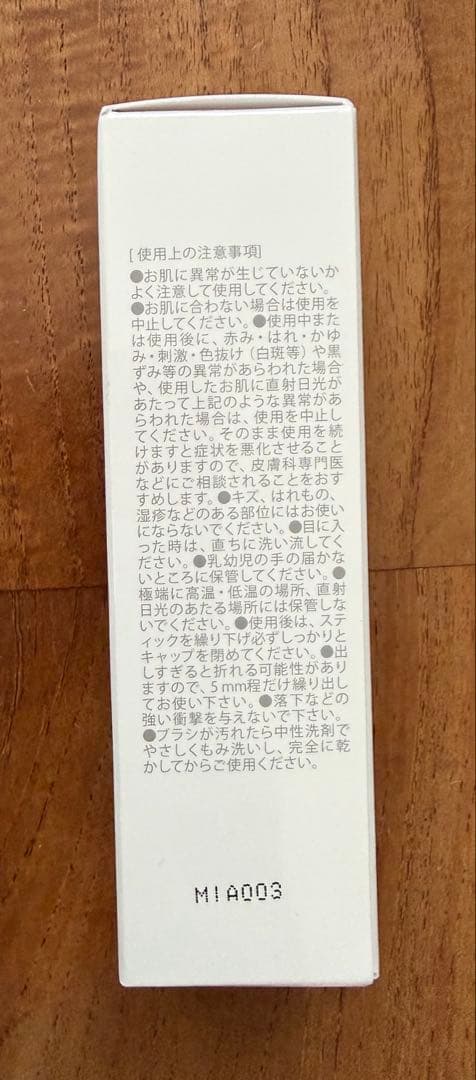 [ 使用上の注意事項]
●お肌に異常が生じていないか
よく注意して使用してください。
●お肌に合わない場合は使用を
中止してください。●使用中また
は使用後に、赤み・はれ・かゆ
み・刺激・色抜け（白斑等）や黒
ずみ等の異常があらわれた場合
や、使用したお肌に直射日光が
あたって上記のような異常があ
らわれた場合は、使用を中止し
てください。そのまま使用を続
けますと症状を悪化させること
がありますので、皮膚科専門医
などにご相談されることをおす
すめします。●キズ、はれもの、
湿疹などのある部位にはお使い
にならないでください。●目に入
った時は、直ちに洗い流してく
ださい。●乳幼児の手の届かな
いところに保管してください。●
極端に高温・低温の場所、直射
日光のあたる場所には保管しな
いでください。●使用後は、ステ
ィックを繰り下げ必ずしっかりと
キャップを閉めてください。●出
しすぎると折れる可能性があり
ますので、5mm程だけ繰り出し
てお使い下さい。●落下などの
強い衝撃を与えないで下さい。
●ブラシが汚れたら中性洗剤で
やさしくもみ洗いし、完全に乾
かしてからご使用ください。
MIA003